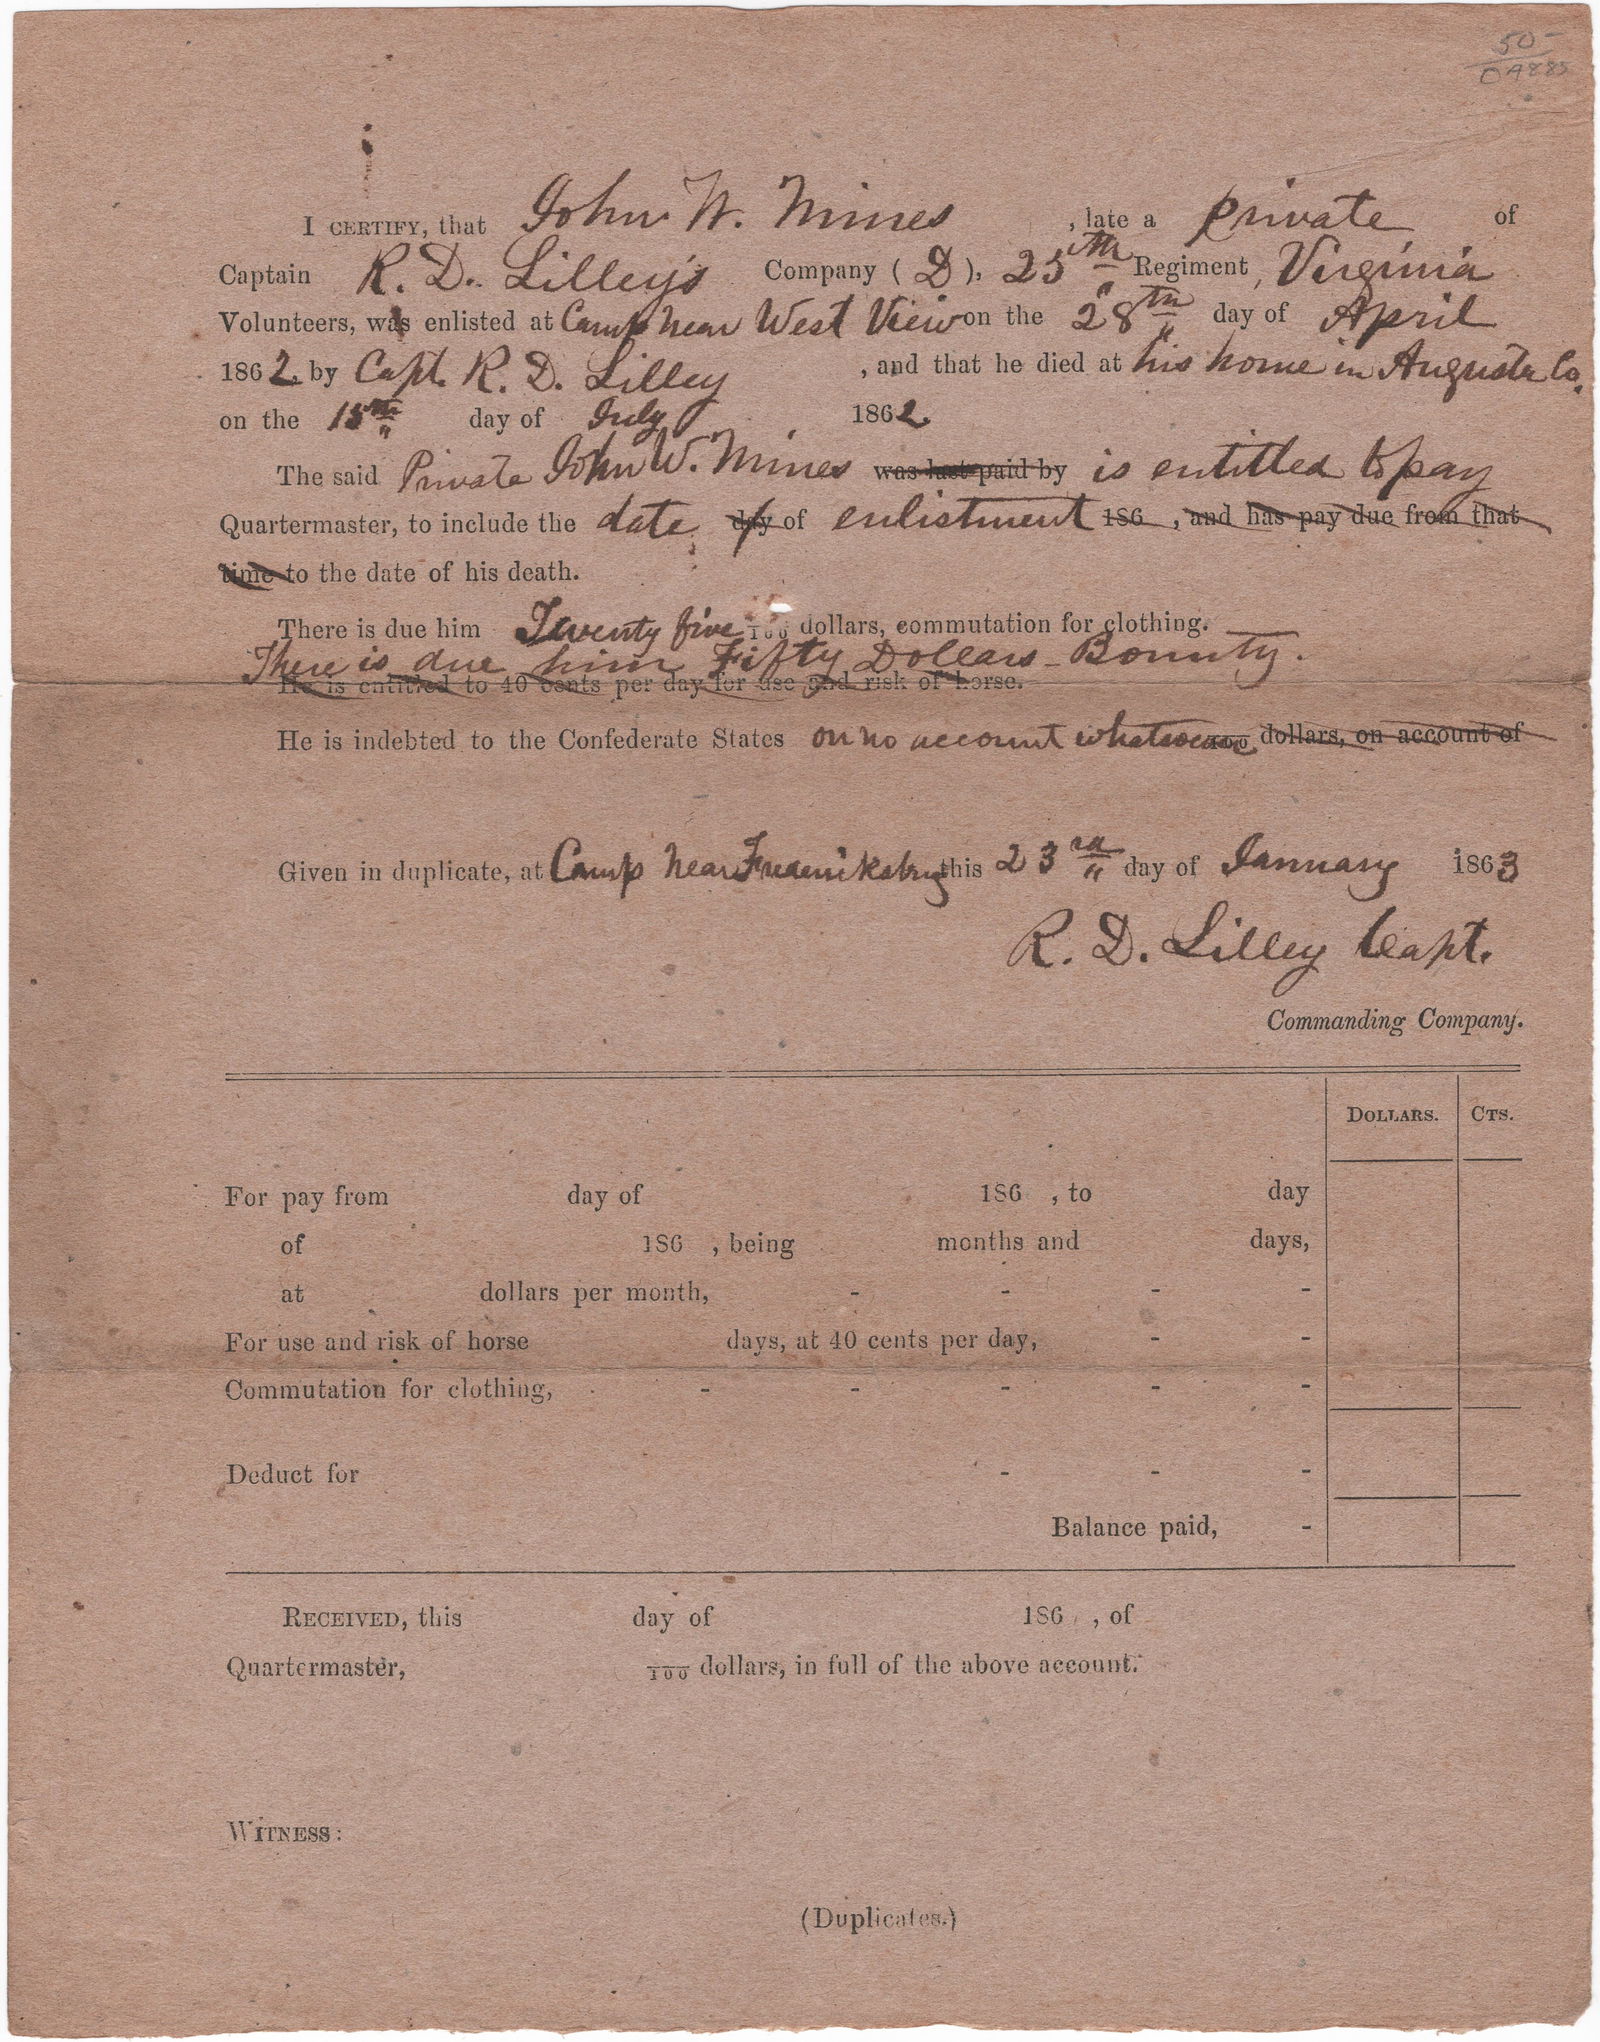 50-
I CERTIFY, that John W. Mines , late a private of
Captain R. D. Lilley's Company ( D ), 25th Regiment, Virginia
Volunteers, was enlisted at Camp near West View on the 28th day of April
1862, by Capt. R. D. Lilley , and that he died at his home in Augusta Co.
on the 15th day of July 1862.
The said Private John W. Mines was last paid by is entitled to pay
Quartermaster, to include the date day of enlistment 186 , and has pay due from that
time to the date of his death.
There is due him Twenty five 100 dollars, commutation for clothing.
There is due him Fifty Dollars - Bounty.
He is entitled to 40 cents per day for use and risk of horse.
He is indebted to the Confederate States on no account whatsoever 100 dollars, on account of
Given in duplicate, at Camp near Fredericksburg this 23rd day of January 1863
R. D. Lilley Capt.
Commanding Company.
DOLLARS. CTS.
For pay from day of 186 , to day
of 186 , being months and days,
at dollars per month, - - - -
For use and risk of horse days, at 40 cents per day, - -
Commutation for clothing, - - - - -
Deduct for - - -
Balance paid, -
RECEIVED, this day of 186 , of
Quartermaster, 100 dollars, in full of the above account.
WITNESS:
(Duplicates.)